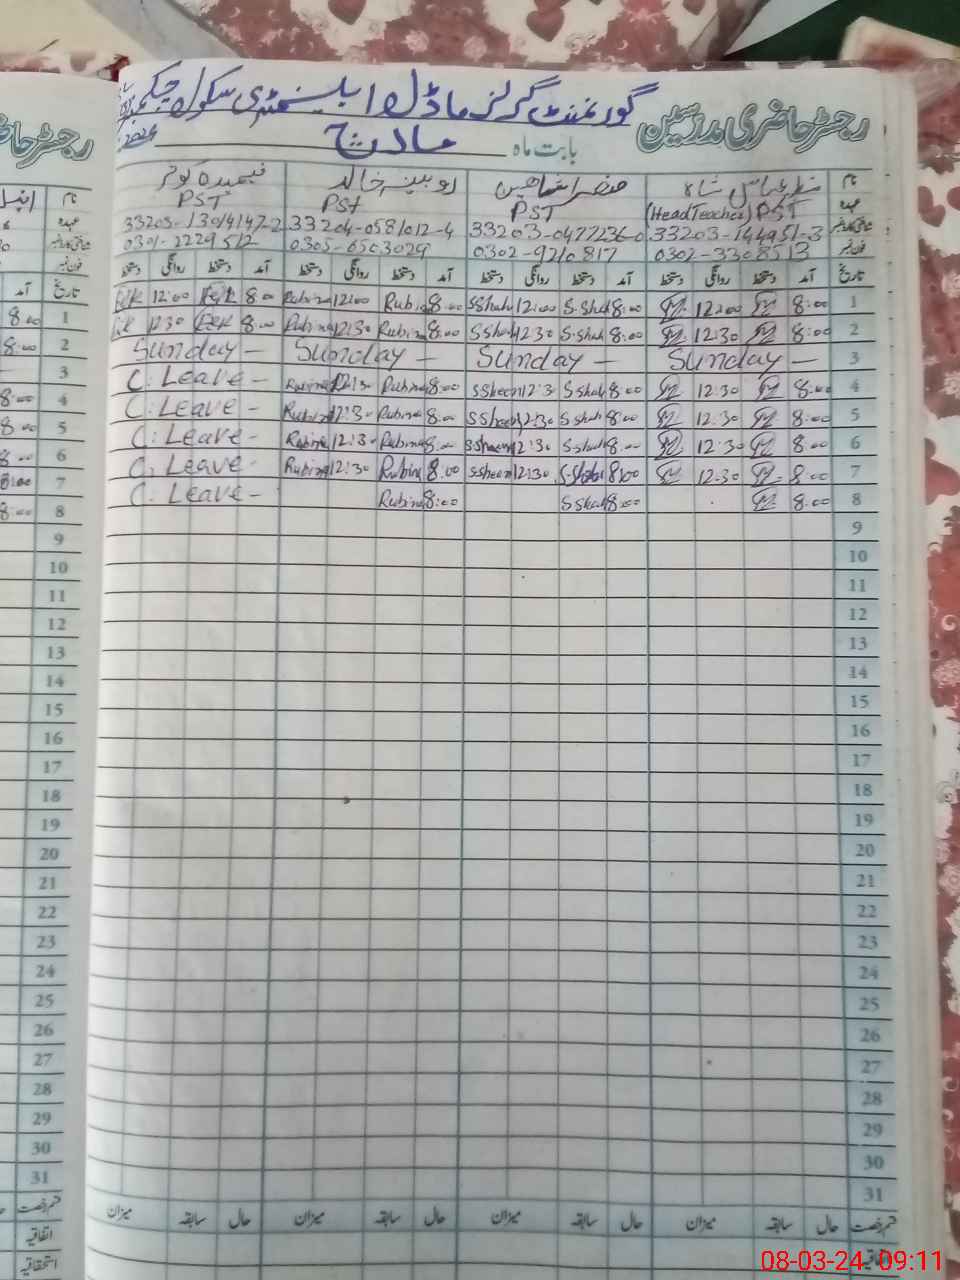 رجسٹر حاضری مدرسین گورنمنٹ گرلز ماڈل ایلیمنٹری سکول
بابت ماہ مارچ 2024
نام منظر عباس شاہ روبینہ خالد فہمیدہ کوثر
عہدہ (Head Teacher) PST PST PST PST
شناختی کارڈ نمبر 33203-144951-3 33203-0477236-0 33204-0581012-4 33203-1304147-2
فون نمبر 0302-3308513 0302-9210817 0305-6503029 0301-2229512
تاریخ آمد دستخط روانگی دستخط آمد دستخط روانگی دستخط آمد دستخط روانگی دستخط آمد دستخط روانگی دستخط
1 8:00 12:00 8:00 S.Shah 12:00 S.Shah 8:00 Rubina 12:00 Rubina 8:00 12:00
2 8:00 12:30 8:00 S.Shah 12:30 S.Shah 8:00 Rubina 12:30 Rubina 8:00 12:30
3 Sunday — Sunday — Sunday — Sunday —
4 8:00 12:30 8:00 S.Shah 12:30 SSheen 8:00 Rubina 12:30 Rubina C. Leave -
5 8:00 12:30 8:00 S.Shah 12:30 SSheen 8:00 Rubina 12:30 Rubina C. Leave -
6 8:00 12:30 8:00 S.Shah 12:30 SSheen 8:00 Rubina 12:30 Rubina C. Leave -
7 8:00 12:30 8:00 S.Shah 12:30 SSheen 8:00 Rubina 12:30 Rubina C. Leave -
8 8:00 8:00 S.Shah 8:00 Rubina C. Leave -
9
10
11
12
13
14
15
16
17
18
19
20
21
22
23
24
25
26
27
28
29
30
31
قسم رخصت حال سابقہ میزان حال سابقہ میزان حال سابقہ میزان حال سابقہ میزان
اتفاقیہ
رجسٹر حاضری
نام
عہدہ
شناختی کارڈ نمبر
فون نمبر
تاریخ آمد
1 8:00
2 8:00
3
4 8:00
5 8:00
6 8:00
7 8:00
8 8:00
9
10
11
12
13
14
15
16
17
18
19
20
21
22
23
24
25
26
27
28
29
30
31
قسم رخصت
اتفاقیہ
استحقاقیہ
08-03-24 09:11